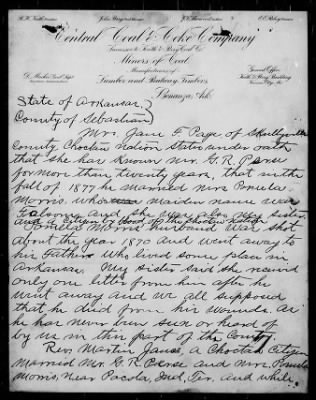 Central Coal & Coke Company
Miners of Coal
Manufacturers of
Lumber and Railway Timbers
Bonanza, Ark.
State of Arkansas,
County of Sebastian
Mrs. Jane F. Page of Skullyville
County, Choctaw Nation States under oath
that she has known Mr. G. R. Perse
for more than twenty years, that in the
fall of 1877 he married Mrs
Morris, who maiden name was
and she was also my sister
and a citizen by blood of the Choctaw Nation
Morris husband was shot
about the year 1870 and went away to
his Father who lived some place in
Arkansas. My sister said she received
only one letter from him after he
went away and we all supposed
that he died from his wounds. as
he has never been seen or heard of
by us in this part of the County.
Rev. Martin James, a Choctaw Citizen
Married Mr. G. R. Perse and Mrs.
Morris, near Pocola, Ind. Ter. and while